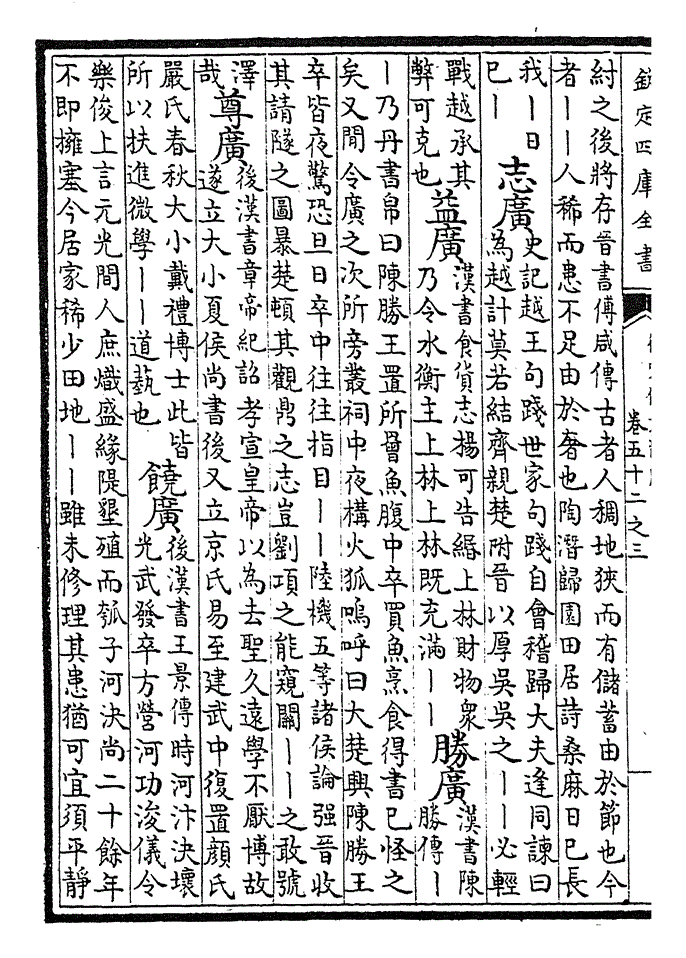 欽定四庫全書
卷五十二之三
紂之後將存晉書傅咸傳古者人稠地狹而有儲蓄由於節也今
者丨丨人稀而患不足由於奢也陶潛歸園田居詩桑麻日已長
我丨日
已丨
志廣
史記越王句踐世家句踐自會稽歸大夫逢同諫曰
為越計莫若結齊親楚附晉以厚吳吳之丨丨必輕
戰越承其
弊可克也
益廣
漢書食貨志楊可告緡上林財物衆
乃令水衡主上林上林既充滿丨丨
勝廣
漢書陳
勝傳丨
丨乃丹書帛曰陳勝王置所罾魚腹中卒買魚烹食得書已怪之
矣又閒令廣之次所旁叢祠中夜構火狐鳴呼曰大楚興陳勝王
卒皆夜驚恐旦日卒中往往指目丨丨陸機五等諸侯論强晉收
其請隧之圖暴楚頓其觀鼎之志豈劉項之能窺關丨丨之敢號
澤
哉
尊廣
後漢書章帝紀詔孝宣皇帝以為去聖久遠學不厭博故
遂立大小夏侯尚書後又立京氏易至建武中復置顔氏
嚴氏春秋大小戴禮博士此皆
所以扶進微學丨丨道藝也
饒廣
後漢書王景傳時河汴決壞
光武發卒方營河功浚儀令
樂俊上言元光間人庶熾盛緣隄墾殖而瓠子河決尚二十餘年
不即擁塞今居家稀少田地丨丨雖未修理其患猶可宜須平靜